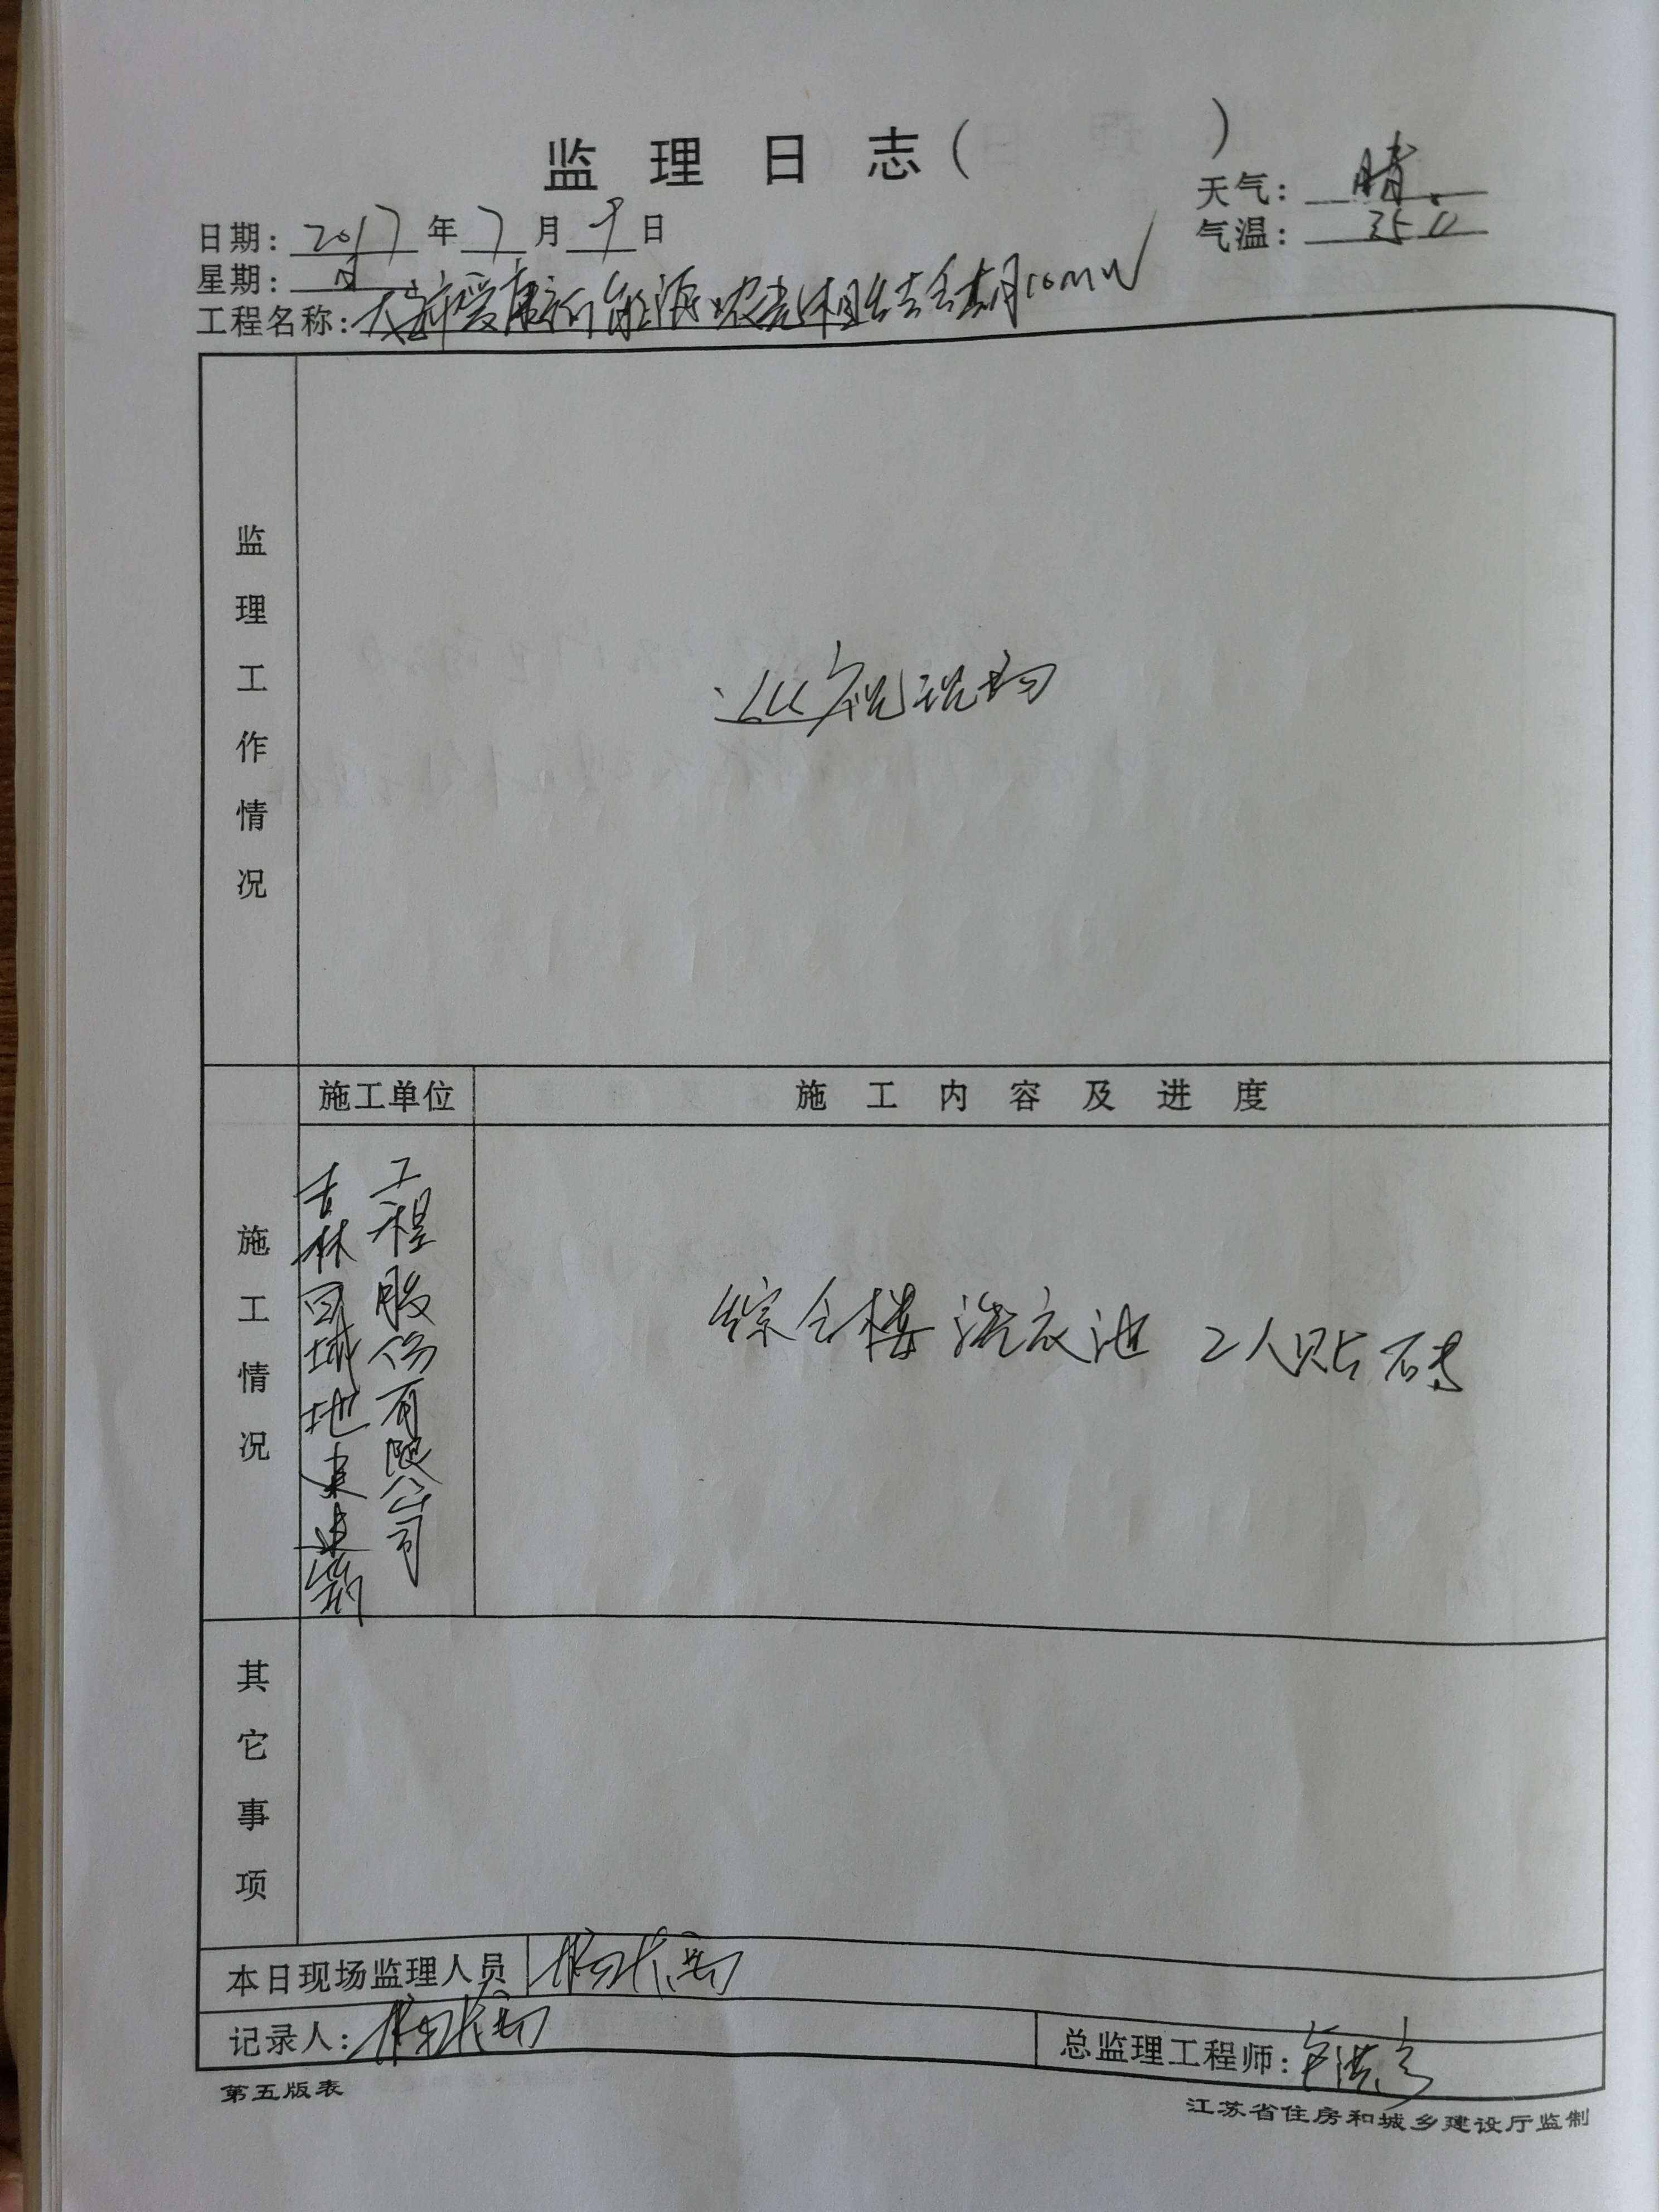 监理日志（ ）
天气：晴
日期：2017年7月9日
气温：35℃
星期：日
工程名称：新能源农光相结合10MW
监理工作情况
巡视现场
施工单位
施工内容及进度
施工情况
吉林 地 建筑
工程股份有限公司
综合楼洗衣池 2人贴砖
其它事项
本日现场监理人员
记录人：
总监理工程师：
第五版表
江苏省住房和城乡建设厅监制